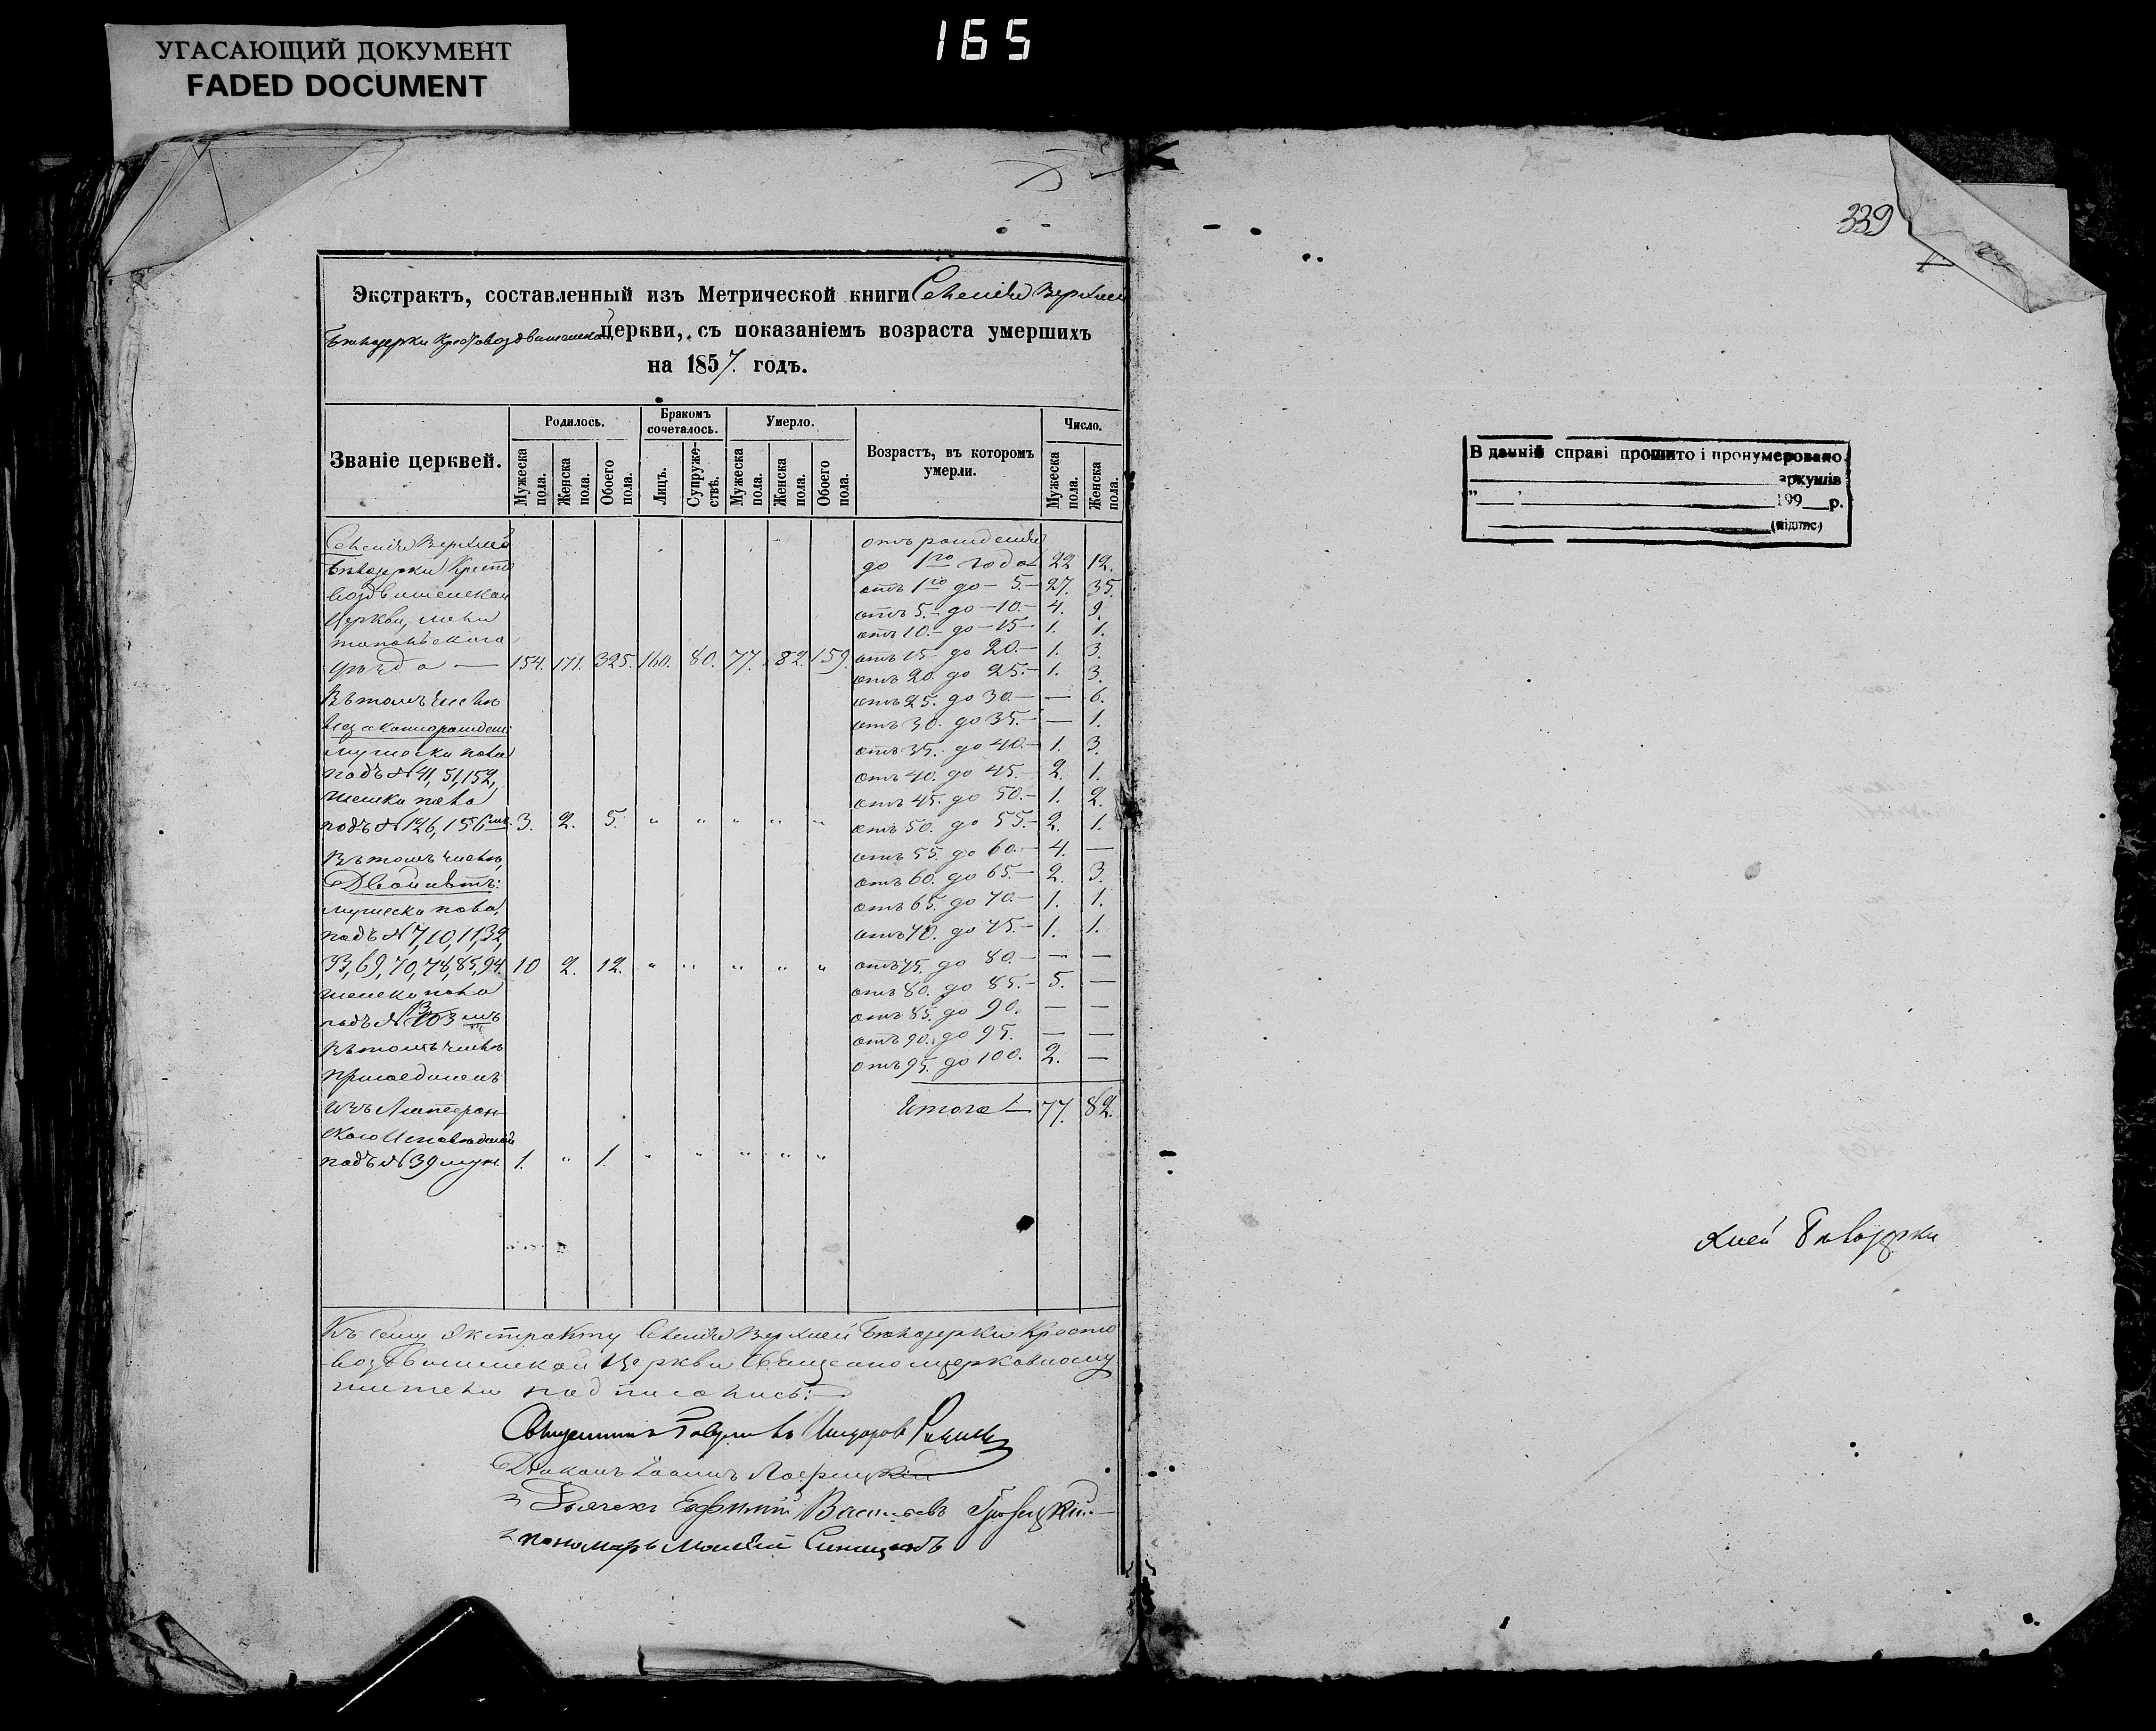 УГАСАЮЩИЙ ДОКУМЕНТ
FADED DOCUMENT
165
Экстрактъ, составленный изъ Метрической книги Селенія Верхней
Бѣлозерки Крестовоздвиженской церкви, съ показаніемъ возраста умершихъ
на 1857. годъ.
Званіе церквей.
Родилось.
Бракомъ сочеталось.
Умерло.
Возрастъ, въ которомъ умерли.
Число.
Мужеска пола.
Женска пола.
Обоего пола.
Лицъ.
Супружествъ.
Мужеска пола.
Женска пола.
Обоего пола.
Мужеска пола.
Женска пола.
Селенія Верхней
Бѣлозерки Кресто
воздвиженской
Церкви, Мели
топольскаго
уѣзда — 154. 171. 325. 160. 80. 77. 82. 159.
Въ томъ числѣ
незаконнорожден
мужеска пола
подъ № 41, 51, 152,
женска пола
подъ № 126, 156 3. 2. 5. " " " " "
Въ томъ числѣ,
Двойнятъ:
мужеска пола,
подъ № 7, 10, 11, 32,
33, 69, 70, 78, 85, 94. 10 2. 12. " " " " "
женска пола
подъ №
Въ томъ числѣ
присоединенъ
изъ Лютеран
скаго Исповѣданія
подъ № 39 муж. 1. " 1. " " " " "
отъ рожденія
до 1го года 22 12.
отъ 1го до 5. 27. 35.
отъ 5. до 10. 4. 9.
отъ 10. до 15 1. 1.
отъ 15 до 20. 1. 3.
отъ 20. до 25. 1. 3.
отъ 25. до 30. — 6.
отъ 30. до 35. — 1.
отъ 35. до 40. 1. 3.
отъ 40. до 45. 2. 1.
отъ 45. до 50. 1. 2.
отъ 50. до 55. 2. 1.
отъ 55. до 60. 4. —
отъ 60. до 65. 2. 3.
отъ 65. до 70. 1. 1.
отъ 70. до 75. 1. 1.
отъ 75. до 80. — —
отъ 80. до 85. 5. —
отъ 85. до 90. — —
отъ 90. до 95. — —
отъ 95. до 100. 2. —
Итого 77. 82.
Къ сему Экстракту Селенія Верхней Бѣлозерки Кресто
воздвиженской Церкви Священноцерковно
служители подписались:
Священникъ Гавріилъ
Діаконъ Іоаннъ
Дьячекъ Евфимій Васильевъ
пономарь
339
В данній справі прошито і пронумеровано
аркушів
" 199 р.
(підпис)
хней Бѣлозерки